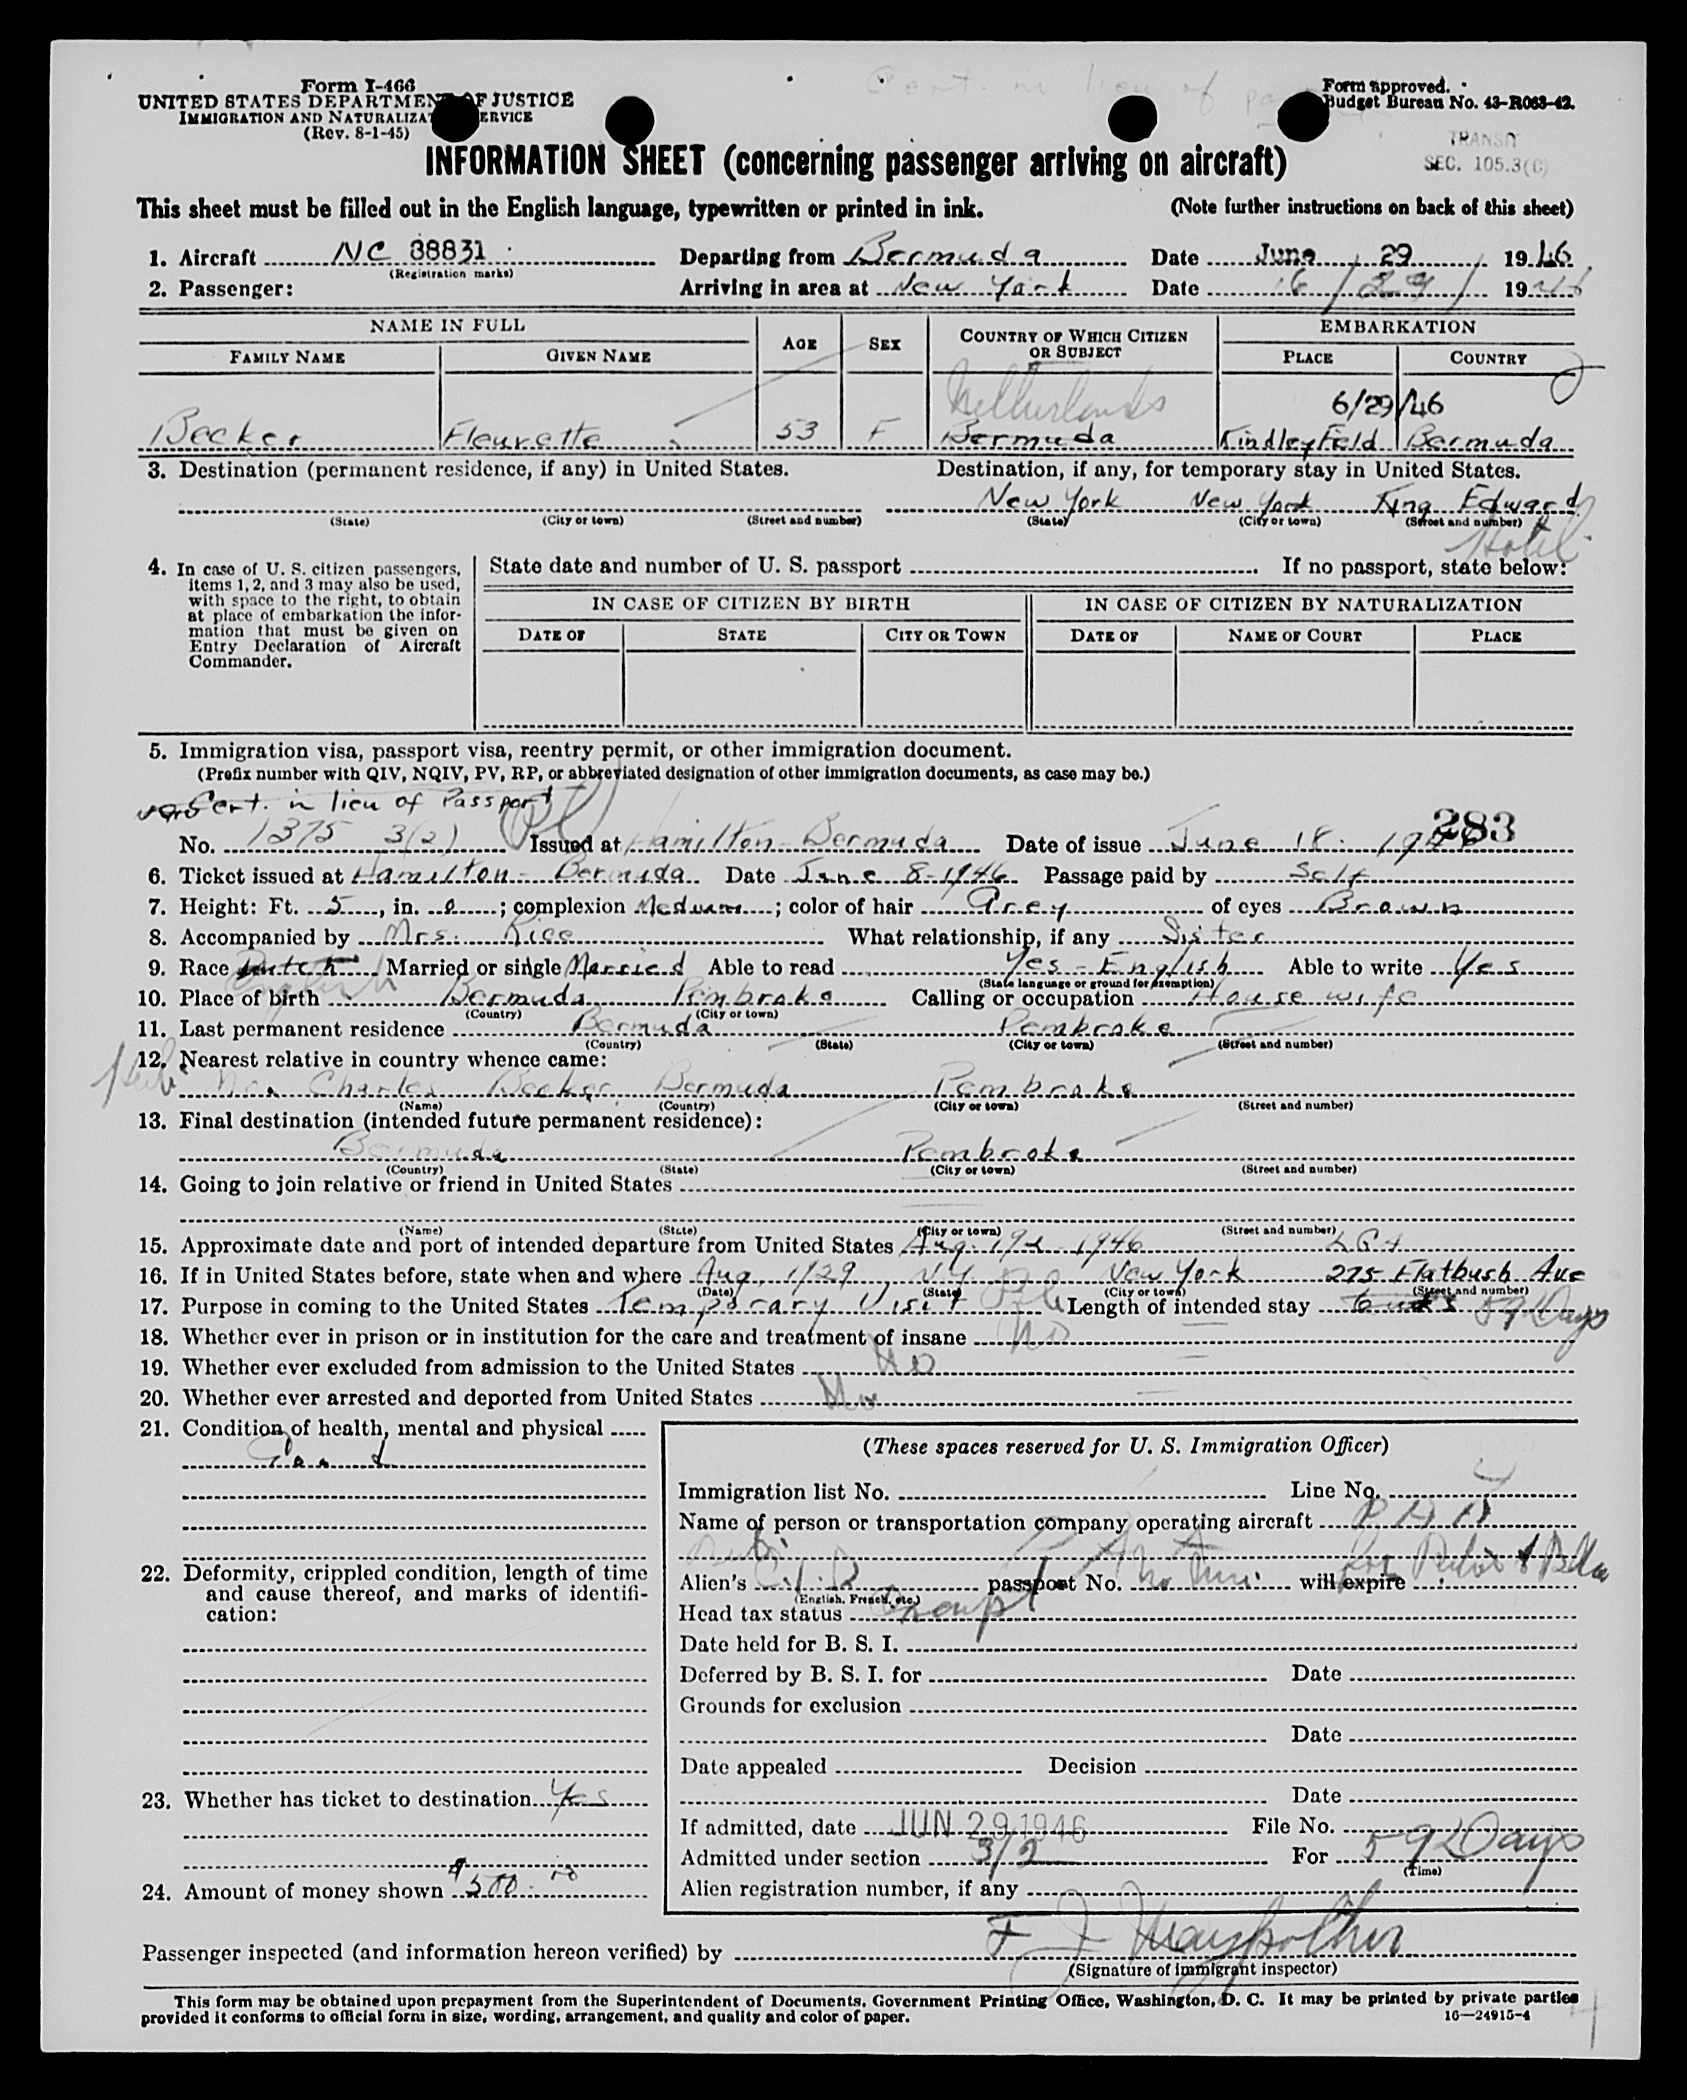 Cert. in lieu of
Form I-466
UNITED STATES DEPARTMENT OF JUSTICE
IMMIGRATION AND NATURALIZATION SERVICE
(Rev. 8-1-45)
Form approved.
Budget Bureau No. 43-R063-42.
TRANSIT
SEC. 105.3(C)
INFORMATION SHEET (concerning passenger arriving on aircraft)
This sheet must be filled out in the English language, typewritten or printed in ink. (Note further instructions on back of this sheet)
1. Aircraft NC 88831 Departing from Bermuda Date June 29 1946
(Registration marks)
2. Passenger: Arriving in area at New York Date 6/29/1946
NAME IN FULL AGE SEX COUNTRY OF WHICH CITIZEN OR SUBJECT EMBARKATION
FAMILY NAME GIVEN NAME PLACE COUNTRY
Netherlands 6/29/46
Becker Fleurette 53 F Bermuda Kindley Field Bermuda
3. Destination (permanent residence, if any) in United States. Destination, if any, for temporary stay in United States.
New York New York King Edward
(State) (City or town) (Street and number) (State) (City or town) (Street and number)
Hotel
4. In case of U. S. citizen passengers, items 1, 2, and 3 may also be used, with space to the right, to obtain at place of embarkation the information that must be given on Entry Declaration of Aircraft Commander.
State date and number of U. S. passport If no passport, state below:
IN CASE OF CITIZEN BY BIRTH IN CASE OF CITIZEN BY NATURALIZATION
DATE OF STATE CITY OR TOWN DATE OF NAME OF COURT PLACE
5. Immigration visa, passport visa, reentry permit, or other immigration document.
(Prefix number with QIV, NQIV, PV, RP, or abbreviated designation of other immigration documents, as case may be.)
Cert. in lieu of Passport
283
No. 1375 3(2) Issued at Hamilton - Bermuda Date of issue June 18. 1946
6. Ticket issued at Hamilton - Bermuda Date June 8-1946 Passage paid by Self
7. Height: Ft. 5, in. 0; complexion Medium; color of hair Grey of eyes Brown
8. Accompanied by Mrs. Rice What relationship, if any Sister
9. Race Dutch Married or single Married Able to read Yes - English Able to write Yes
English (State language or ground for exemption)
10. Place of birth Bermuda Pembroke Calling or occupation Housewife
(Country) (City or town)
11. Last permanent residence Bermuda Pembroke
(Country) (State) (City or town) (Street and number)
12. Nearest relative in country whence came:
Charles Becker Bermuda Pembroke
(Name) (Country) (City or town) (Street and number)
13. Final destination (intended future permanent residence):
Bermuda Pembroke
(Country) (State) (City or town) (Street and number)
14. Going to join relative or friend in United States
(Name) (State) (City or town) (Street and number)
15. Approximate date and port of intended departure from United States Aug. 1946
16. If in United States before, state when and where Aug. 1/29, N.Y. New York 275 Flatbush Ave
(Date) (State) (City or town) (Street and number)
17. Purpose in coming to the United States Temporary Visit Length of intended stay 59 Days
18. Whether ever in prison or in institution for the care and treatment of insane No
19. Whether ever excluded from admission to the United States No
20. Whether ever arrested and deported from United States No
21. Condition of health, mental and physical
Good
22. Deformity, crippled condition, length of time and cause thereof, and marks of identification:
23. Whether has ticket to destination Yes
24. Amount of money shown $500.00
(These spaces reserved for U. S. Immigration Officer)
Immigration list No. Line No.
Name of person or transportation company operating aircraft
Alien's passport No. will expire
(English, French, etc.)
Head tax status Exempt
Date held for B. S. I.
Deferred by B. S. I. for Date
Grounds for exclusion
Date
Date appealed Decision
Date
If admitted, date JUN 29 1946 File No.
Admitted under section 3/2 For 59 Days
(Time)
Alien registration number, if any
Passenger inspected (and information hereon verified) by
(Signature of immigrant inspector)
This form may be obtained upon prepayment from the Superintendent of Documents, Government Printing Office, Washington, D. C. It may be printed by private parties
provided it conforms to official form in size, wording, arrangement, and quality and color of paper. 16—24915-4